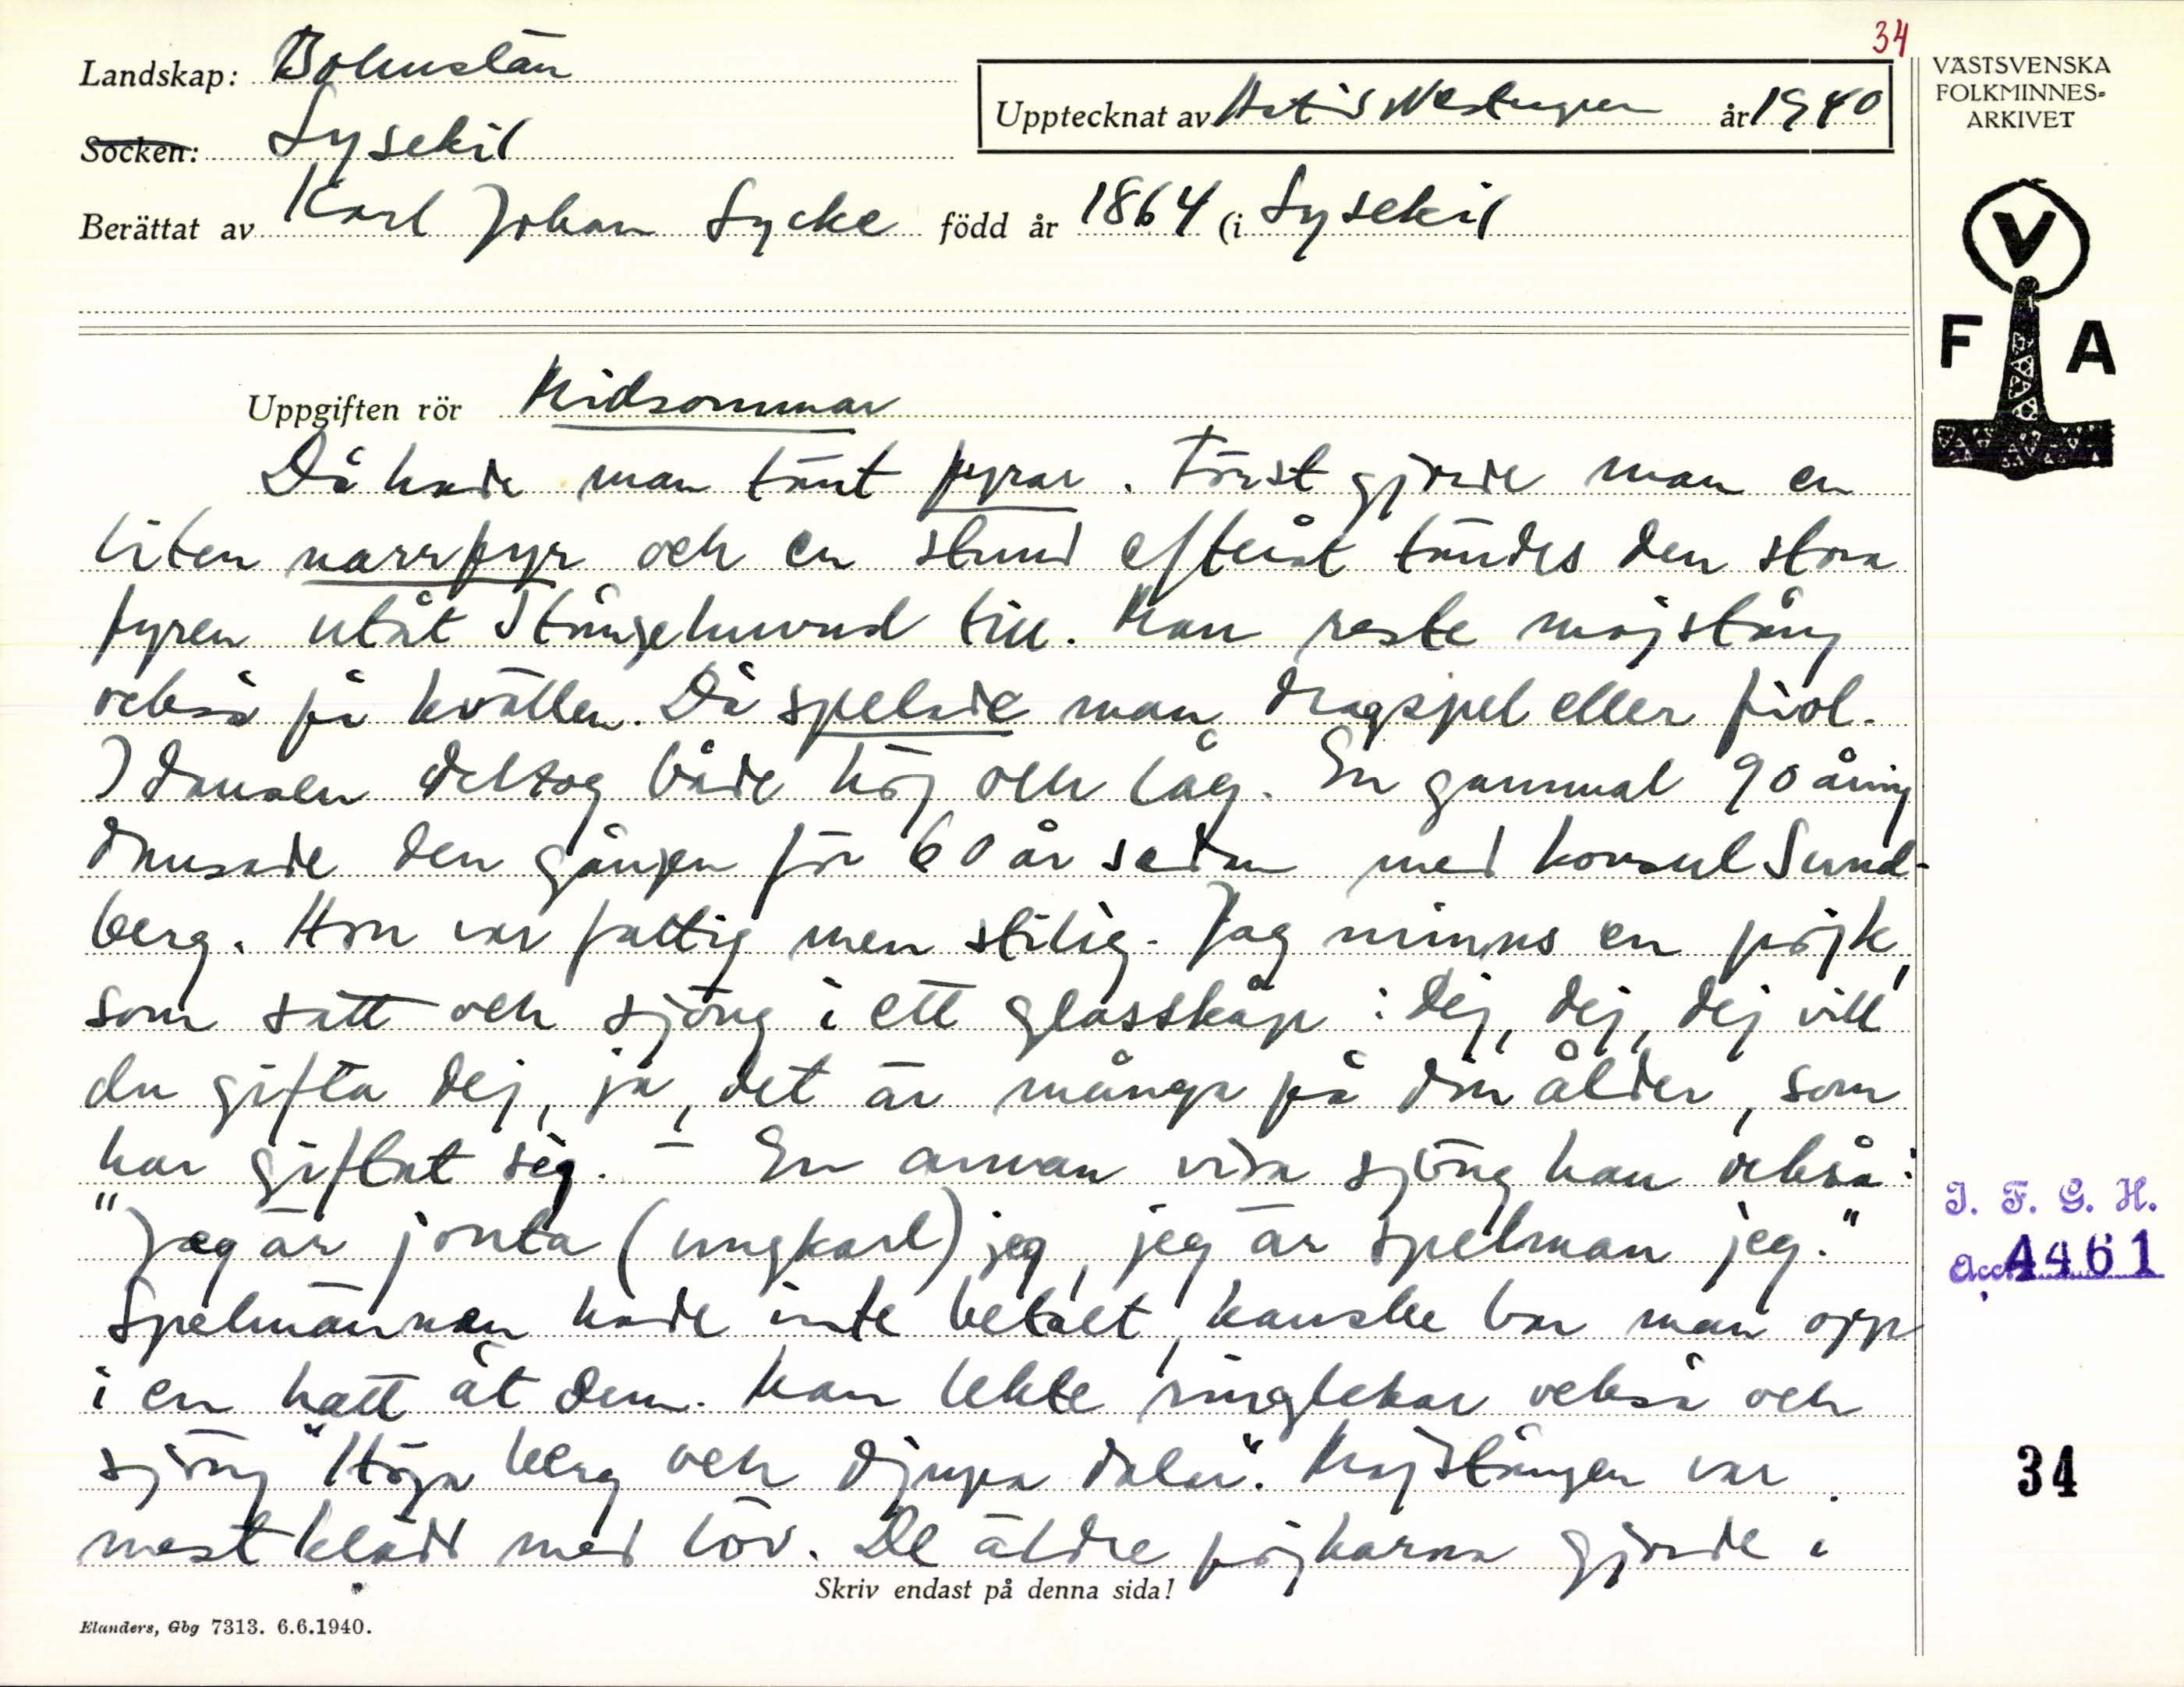 34
Landskap: Bohuslän
Upptecknat av Westergren år 1940
Socken: Lysekil
Berättat av Karl Johan Lycke född år 1864 (i Lysekil
VÄSTSVENSKA
FOLKMINNES-
ARKIVET
V
F A
Uppgiften rör Midsommar
Då hade man tänt fyrar. Först gjorde man en
liten narrfyr och en stund efteråt tändes den stora
fyren utåt Stångehuvud till. Man reste majstång
också på kvällen. Då spelade man dragspel eller fiol.
I dansen deltog både hög och låg. En gammal 90 åring
dansade den gången för 60 år sedan med konsul Sund-
berg. Hon var fattig men stilig. Jag minns en pöjk,
som satt och sjöng i ett glasskåp: dej, dej, dej vill
du gifta dej, ja, det är många på din ålder, som
har giftat sig. - En annan visa sjöng han också:
"Jag är jonta (ungkarl) jeg, jeg är spelman jeg."
Spelmännen hade inte betalt, kanske bar man opp
i en hatt åt dem. Man lekte ringlekar också och
sjöng "Höga berg och djupa dalar". Majstången var
mest klädd med löv. De äldre pöjkarna gjorde i
Skriv endast på denna sida!
Elanders, Gbg 7313. 6.6.1940.
I. F. G. H.
Acc. 4461
34